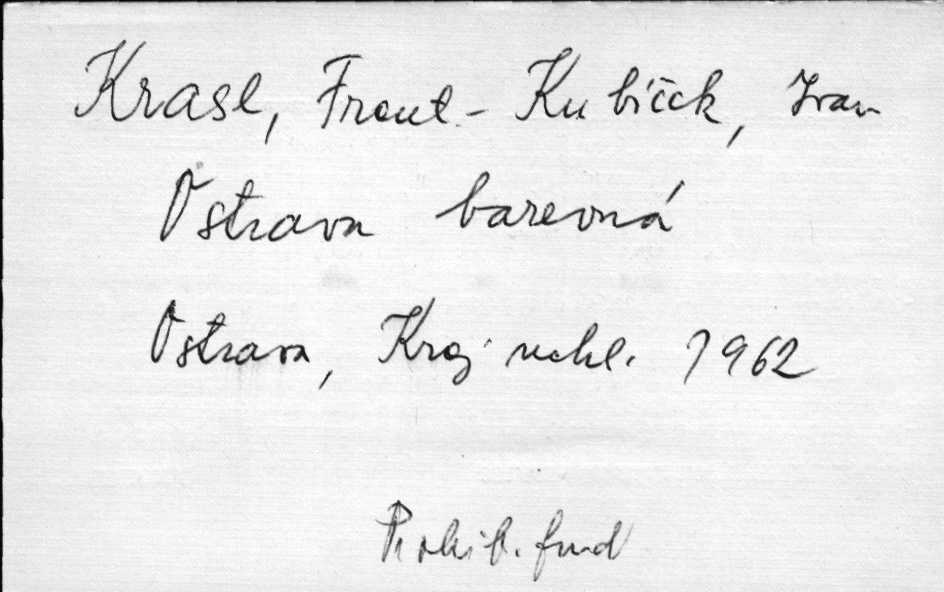 Krasl, Frant. - Kubíček, Ivan
Ostrava barevná
Ostrava, Kraj. nakl. 1962
Prohib. fond